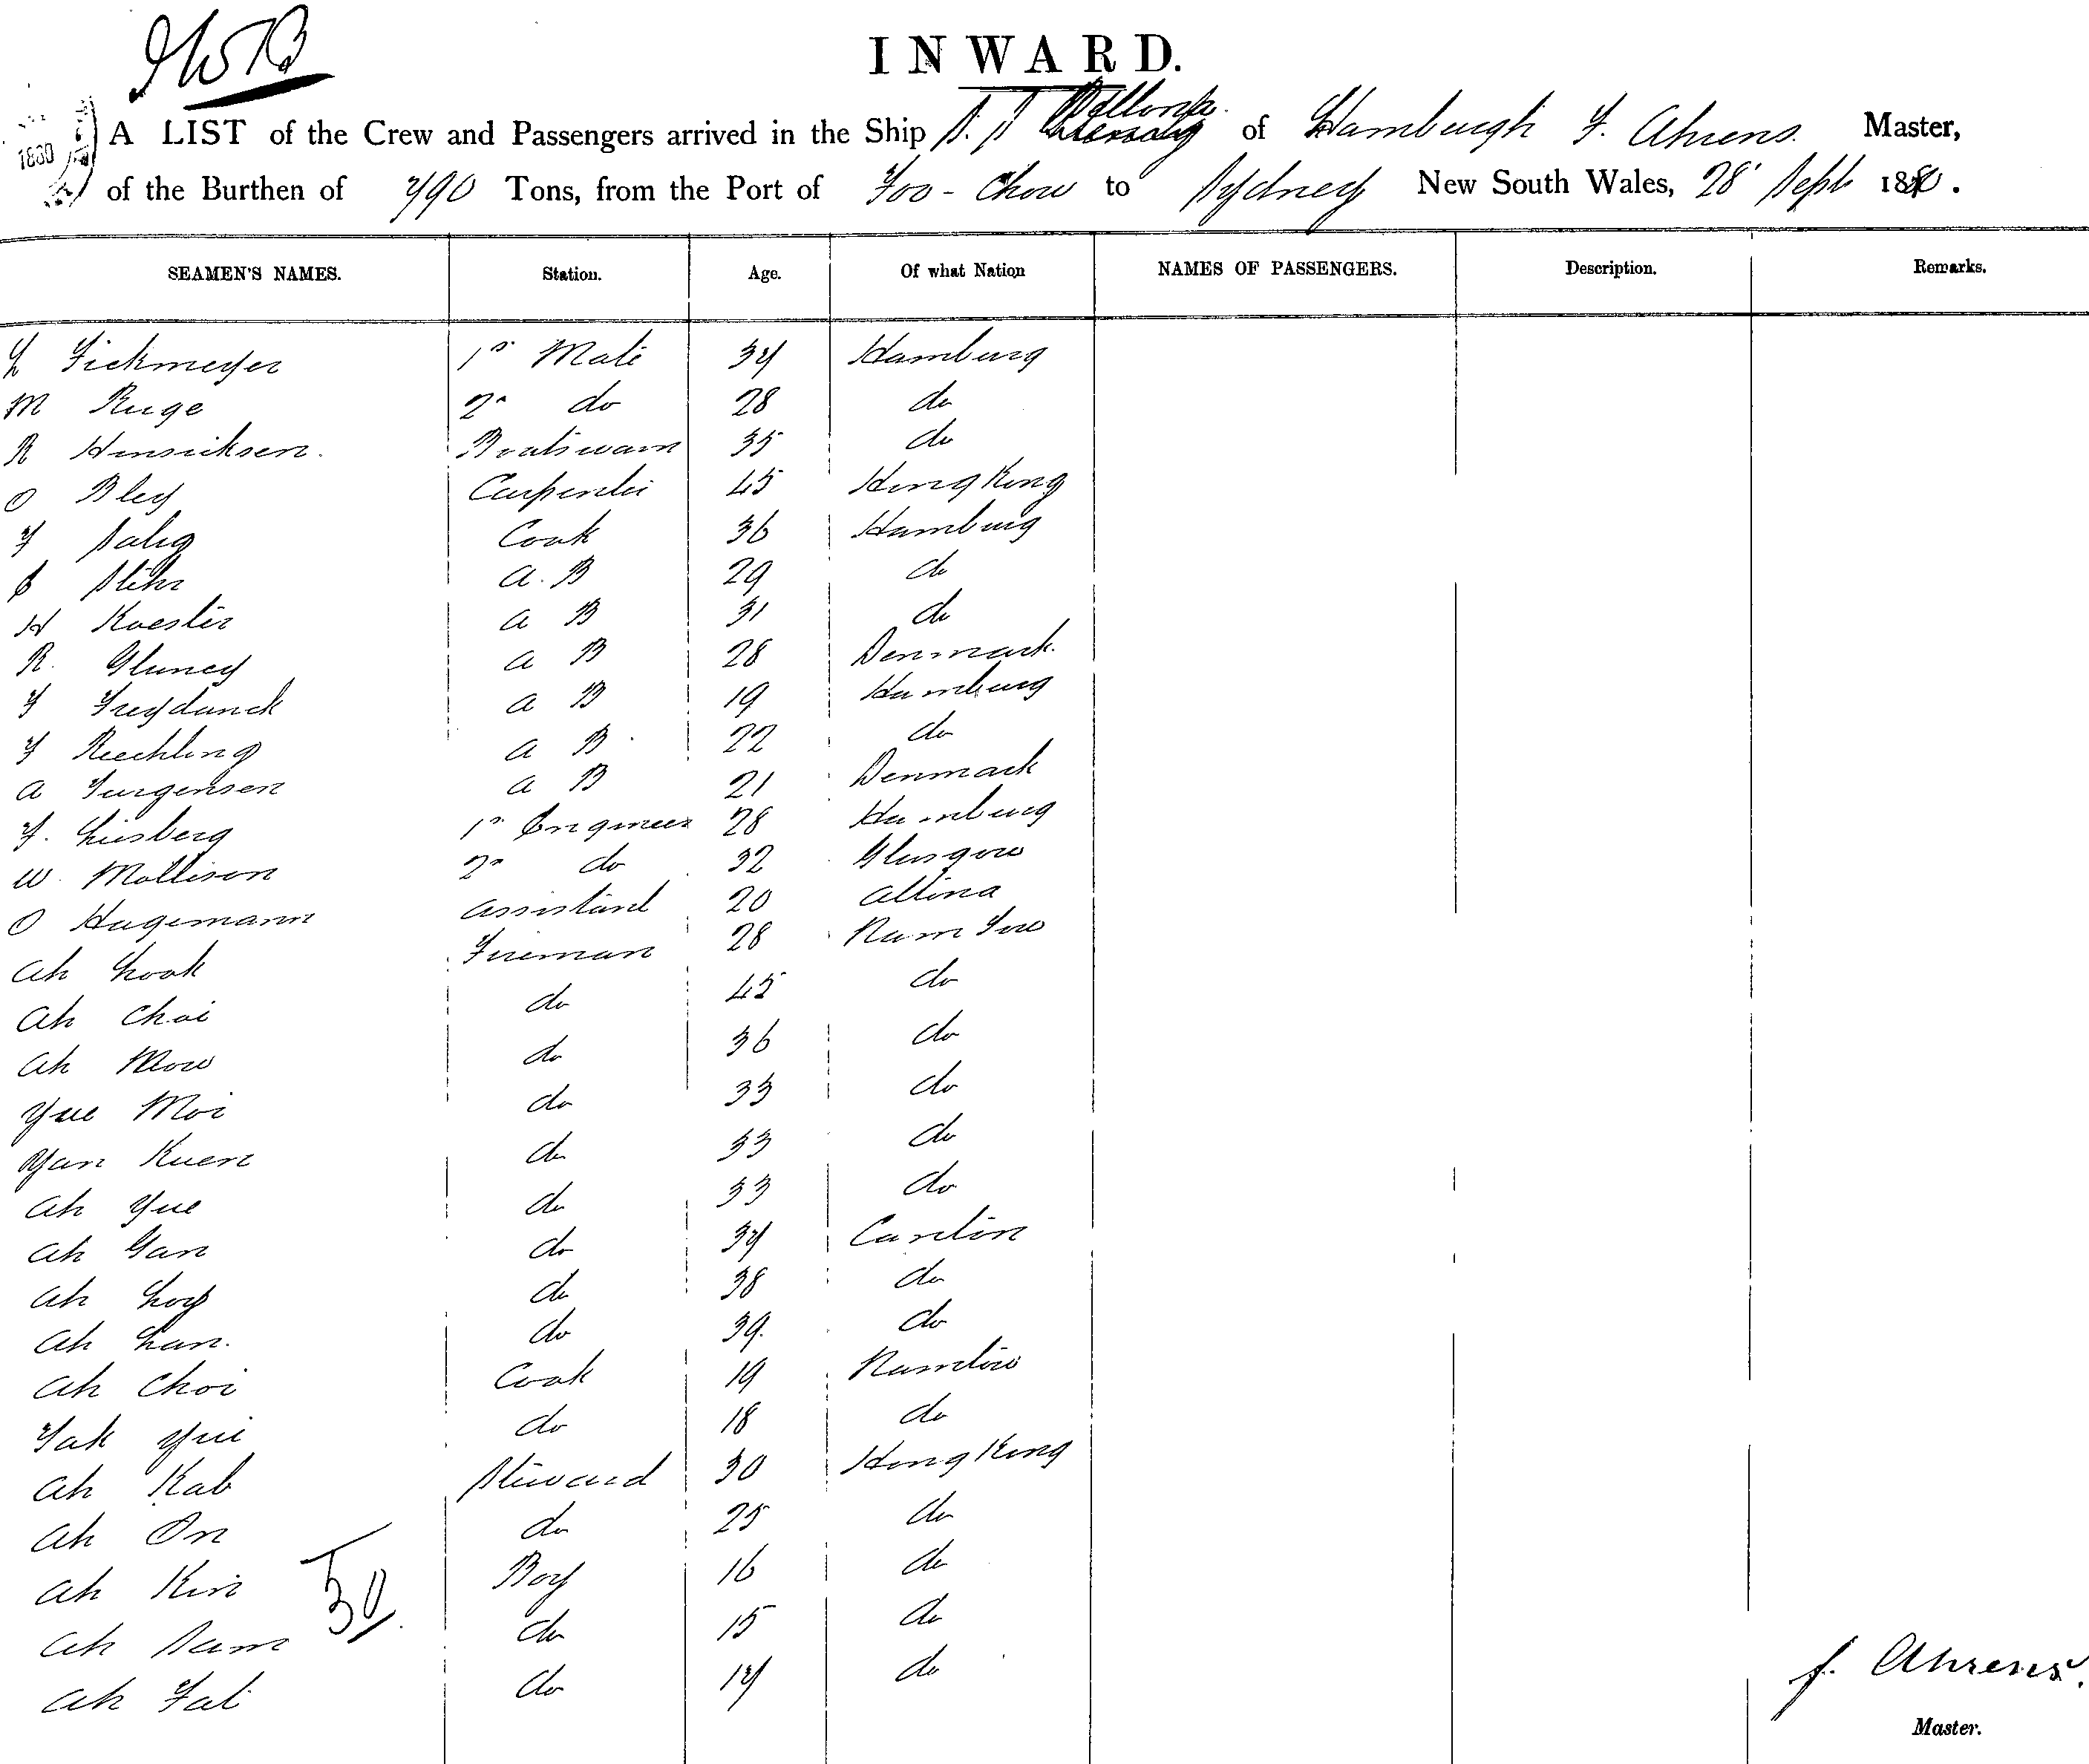 INWARD.
A LIST of the Crew and Passengers arrived in the Ship S. S of Hamburgh F. Ahrens. Master,
1880
of the Burthen of 790 Tons, from the Port of Foo-Chow to Sydney New South Wales, 28 Sept 1880.
SEAMEN'S NAMES. Station. Age. Of what Nation NAMES OF PASSENGERS. Description. Remarks.
Fickmeyer 1st Mate 37 Hamburg
M Ruge 2nd do 28 do
R Hinsriksen. Boatswain 35 do
O Bley Carpenter 45 Hong Kong
Cook 36 Hamburg
Stehr A. B 29 do
H Koester A B 31 do
R. A B 28 Denmark.
F Freydanck A B 19 Hamburg
F Reechling A B 22 do
A Jurgensen A B 21 Denmark
F. Liesberg 1st Engineer 28 Hamburg
W. Mollison 2nd do 32 Glasgow
O Hagemann Assistant 20 Altona
Ah Look Fireman 28 Nam Tow
Ah Choi do 45 do
Ah Mow do 36 do
Yue Moi do 33 do
Yan Kuen do 33 do
Ah Yue do 33 do
Ah Gan do 37 Canton
Ah Loy do 38 do
Ah Lan. do 39. do
Ah Choi Cook 19 Namtow
Yak Yui do 18 do
Ah Kab Steward 30 Hong Kong
Ah On do 25 do
Ah Kin Boy 16 do
30
Ah Sam do 15 do
Ah Fat do 14 do
F. Ahrens.
Master.